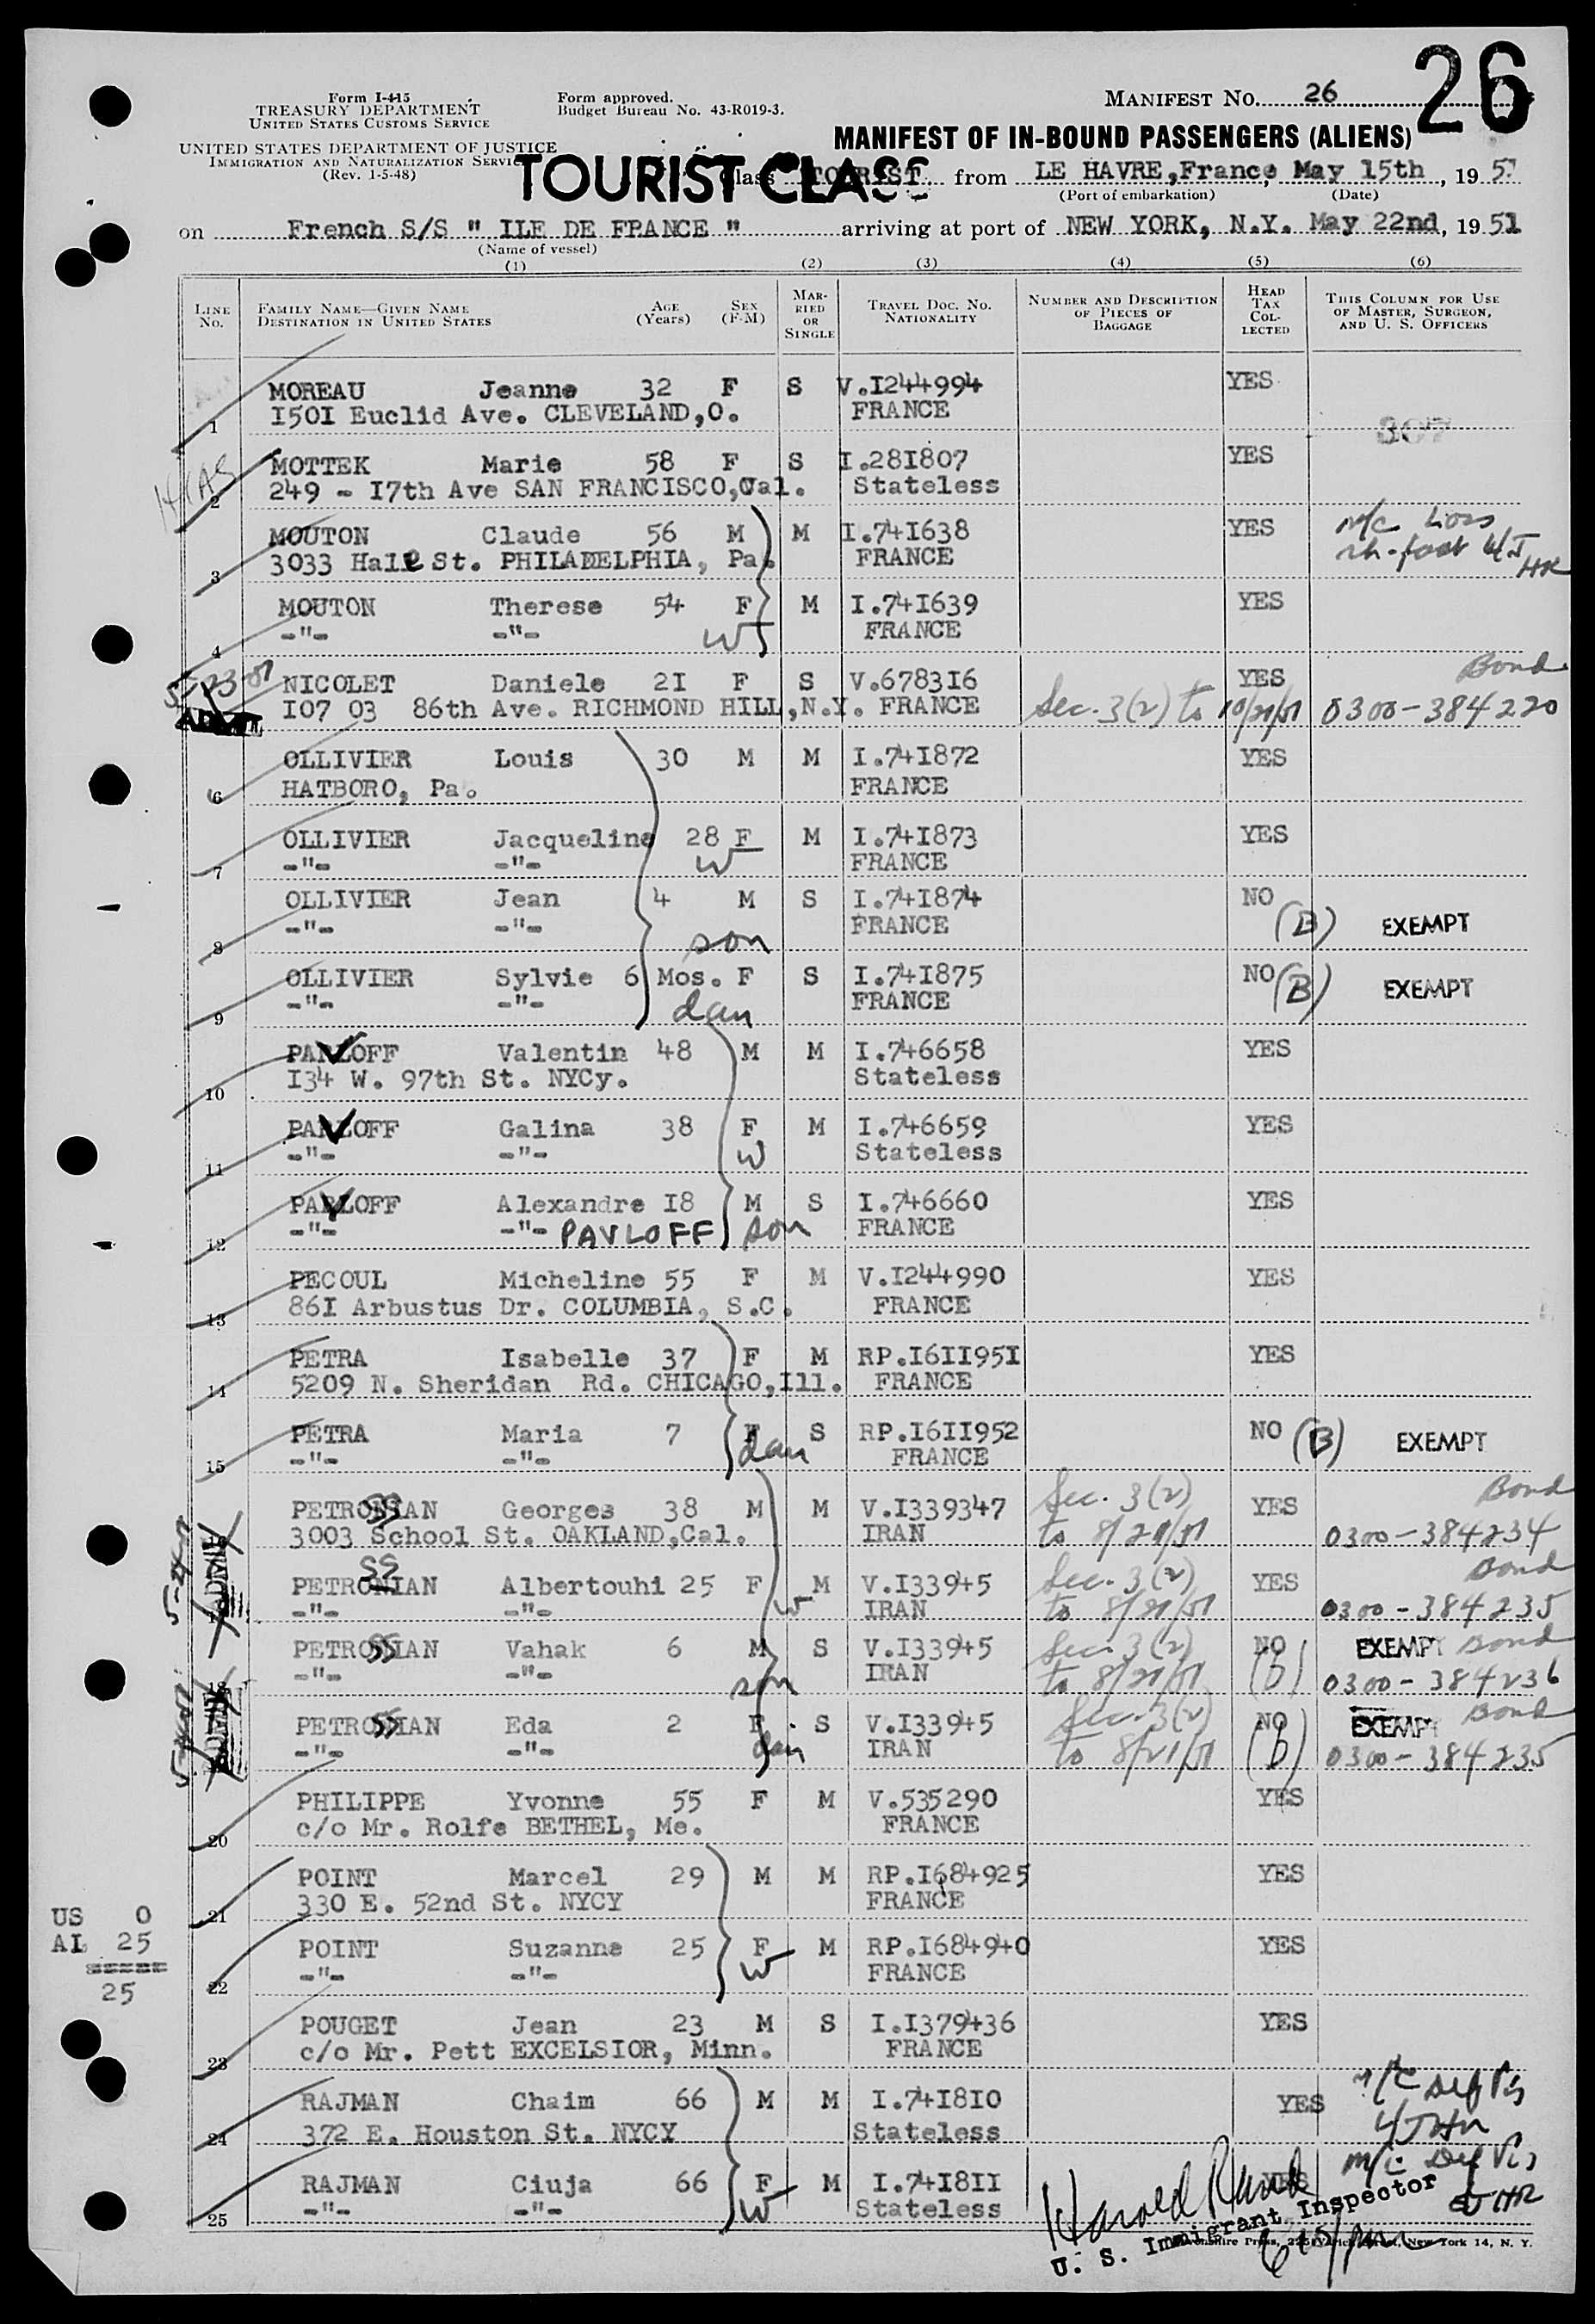 Form I-415
TREASURY DEPARTMENT
UNITED STATES CUSTOMS SERVICE
UNITED STATES DEPARTMENT OF JUSTICE
IMMIGRATION AND NATURALIZATION SERVICE
(Rev. 1-5-48)
Form approved.
Budget Bureau No. 43-R019-3.
MANIFEST NO. 26
26
MANIFEST OF IN-BOUND PASSENGERS (ALIENS)
TOURIST CLASS
Class TOURIST from LE HAVRE,France, May 15th, 195
(Port of embarkation) (Date)
on French S/S " ILE DE FRANCE " arriving at port of NEW YORK, N.Y. May 22nd, 1951
(Name of vessel)
(1) (2) (3) (4) (5) (6)
LINE NO.
FAMILY NAME—GIVEN NAME
DESTINATION IN UNITED STATES
AGE (Years)
SEX (F-M)
MARRIED OR SINGLE
TRAVEL DOC. NO. NATIONALITY
NUMBER AND DESCRIPTION OF PIECES OF BAGGAGE
HEAD TAX COLLECTED
THIS COLUMN FOR USE OF MASTER, SURGEON, AND U. S. OFFICERS
1 MOREAU Jeanne 32 F S V.I244994 YES
I50I Euclid Ave. CLEVELAND,O. FRANCE
307
HIAS
2 MOTTEK Marie 58 F S I.28I807 YES
249 - I7th Ave SAN FRANCISCO,Cal. Stateless
3 MOUTON Claude 56 M M I.74I638 YES
3033 Hale St. PHILADELPHIA, Pa. FRANCE
4 MOUTON Therese 54 F M I.74I639 YES
-"- -"- W FRANCE
5-23-51 NICOLET Daniele 2I F S V.6783I6 YES Bond
ADMIT I07 03 86th Ave. RICHMOND HILL,N.Y. FRANCE Sec. 3(2) to 10/21/51 0300-384220
6 OLLIVIER Louis 30 M M I.74I872 YES
HATBORO, Pa. FRANCE
7 OLLIVIER Jacqueline 28 F M I.74I873 YES
-"- -"- W FRANCE
8 OLLIVIER Jean 4 M S I.74I874 NO
-"- -"- son FRANCE (B) EXEMPT
9 OLLIVIER Sylvie 6 Mos. F S I.74I875 NO (B) EXEMPT
-"- -"- dau FRANCE
10 PAVLOFF Valentin 48 M M I.746658 YES
I34 W. 97th St. NYCy. Stateless
11 PAVLOFF Galina 38 F M I.746659 YES
-"- -"- W Stateless
12 PAVLOFF Alexandre I8 M S I.746660 YES
-"- -"- PAVLOFF son FRANCE
13 PECOUL Micheline 55 F M V.I244990 YES
86I Arbustus Dr. COLUMBIA, S.C. FRANCE
14 PETRA Isabelle 37 F M RP.I6II95I YES
5209 N. Sheridan Rd. CHICAGO,Ill. FRANCE
15 PETRA Maria 7 F S RP.I6II952 NO (B) EXEMPT
-"- -"- dau FRANCE
PETROSSIAN Georges 38 M M V.I339347 Sec. 3(2) YES Bond
3003 School St. OAKLAND,Cal. IRAN to 8/21/51 0300-384234
PETROSSIAN Albertouhi 25 F M V.I33945 Sec. 3(2) YES Bond
-"- -"- W IRAN to 8/21/51 0300-384235
18 PETROSSIAN Vahak 6 M S V.I33945 Sec. 3(2) NO EXEMPT Bond
-"- -"- son IRAN to 8/21/51 (b) 0300-384236
PETROSSIAN Eda 2 F S V.I33945 Sec. 3(2) NO EXEMPT Bond
-"- -"- dau IRAN to 8/21/51 (b) 0300-384235
20 PHILIPPE Yvonne 55 F M V.535290 YES
c/o Mr. Rolfe BETHEL, Me. FRANCE
21 POINT Marcel 29 M M RP.I684925 YES
330 E. 52nd St. NYCY FRANCE
US 0
AL 25
=====
25
22 POINT Suzanne 25 F M RP.I684940 YES
-"- -"- W FRANCE
23 POUGET Jean 23 M S I.I379436 YES
c/o Mr. Pett EXCELSIOR, Minn. FRANCE
24 RAJMAN Chaim 66 M M I.74I8I0 YES
372 E. Houston St. NYCY Stateless
25 RAJMAN Ciuja 66 F M I.74I8II YES
-"- -"- W Stateless
U. S. Immigrant Inspector
New York 14, N. Y.